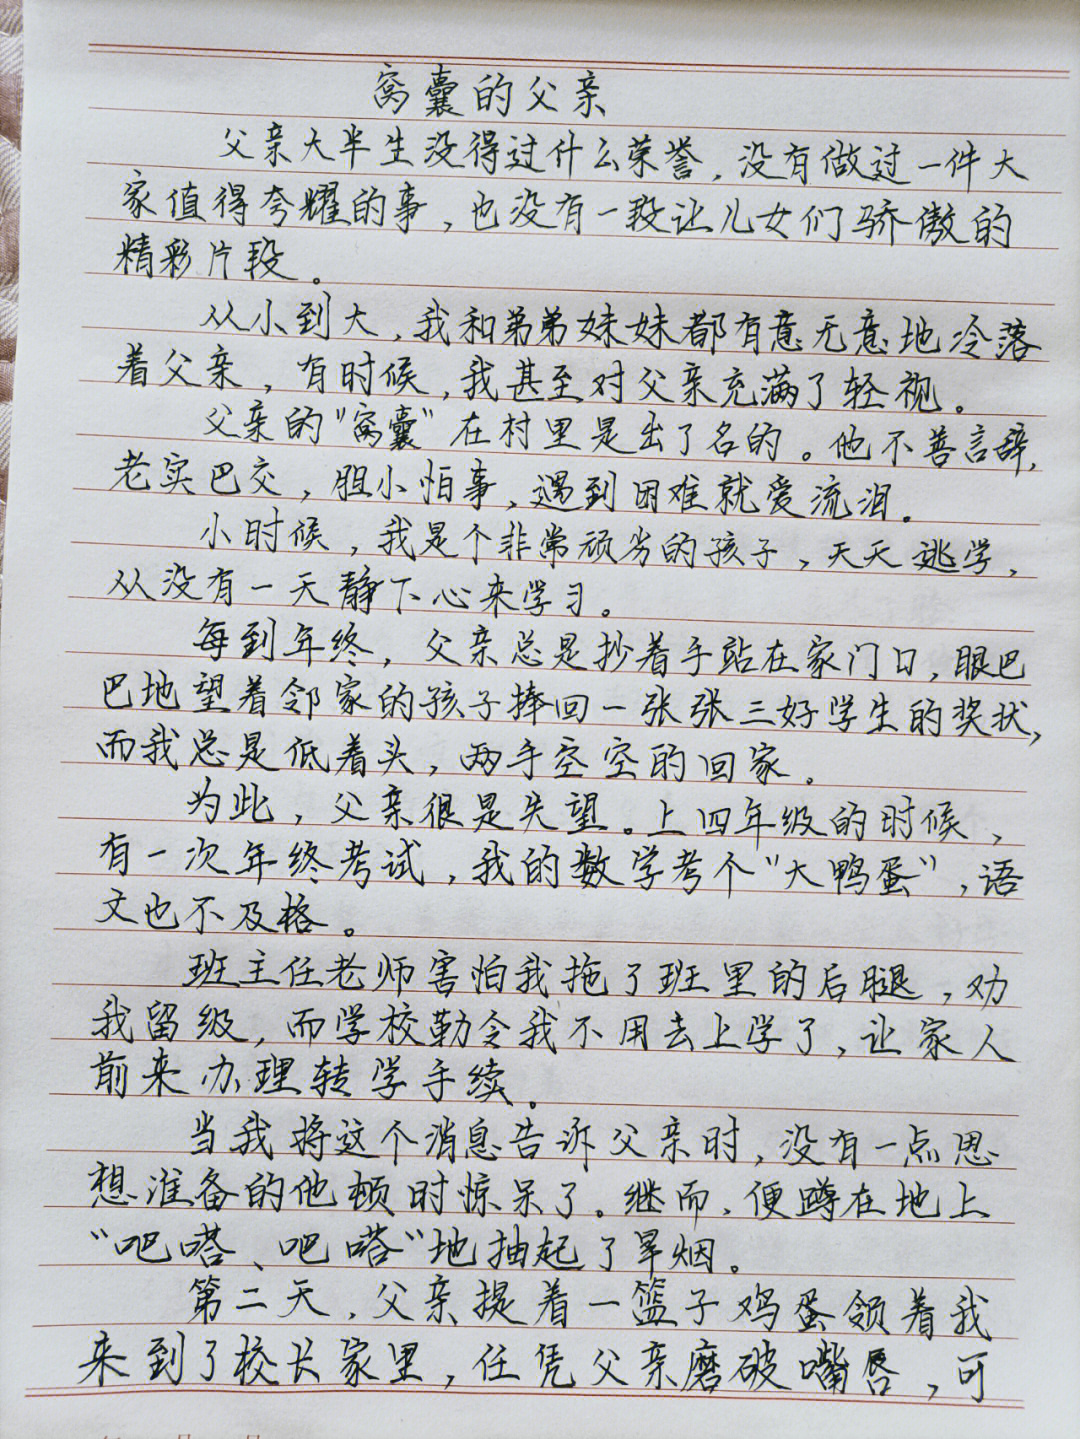 窝囊的父亲
父亲大半生没得过什么荣誉，没有做过一件大
家值得夸耀的事，也没有一段让儿女们骄傲的
精彩片段。
从小到大，我和弟弟妹妹都有意无意地冷落
着父亲，有时候，我甚至对父亲充满了轻视。
父亲的“窝囊”在村里是出了名的。他不善言辞，
老实巴交，胆小怕事，遇到困难就爱流泪。
小时候，我是个非常顽劣的孩子，天天逃学，
从没有一天静下心来学习。
每到年终，父亲总是抄着手站在家门口，眼巴
巴地望着邻家的孩子捧回一张张三好学生的奖状，
而我总是低着头，两手空空的回家。
为此，父亲很是失望。上四年级的时候，
有一次年终考试，我的数学考个“大鸭蛋”，语
文也不及格。
班主任老师害怕我拖了班里的后腿，劝
我留级，而学校勒令我不用去上学了，让家人
前来办理转学手续。
当我将这个消息告诉父亲时，没有一点思
想准备的他顿时惊呆了。继而，便蹲在地上
“吧嗒、吧嗒”地抽起了旱烟。
第二天，父亲提着一篮子鸡蛋领着我
来到了校长家里，任凭父亲磨破嘴唇，可